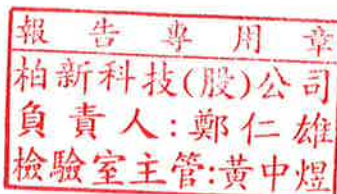 報告專用章
柏新科技(股)公司
負責人:鄭仁雄
檢驗室主管:黃中焜